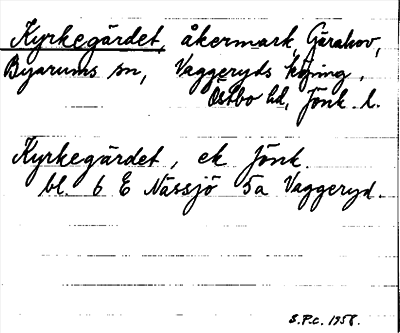 Kyrkegärdet, åkermark, Götahov,
Byarums sn, Vaggeryds köping,
Östbo hd, Jönk. l.
Kyrkegärdet, ek Jönk.
bl. 6 E Nässjö 5a Vaggeryd.
S.P.C. 1958.